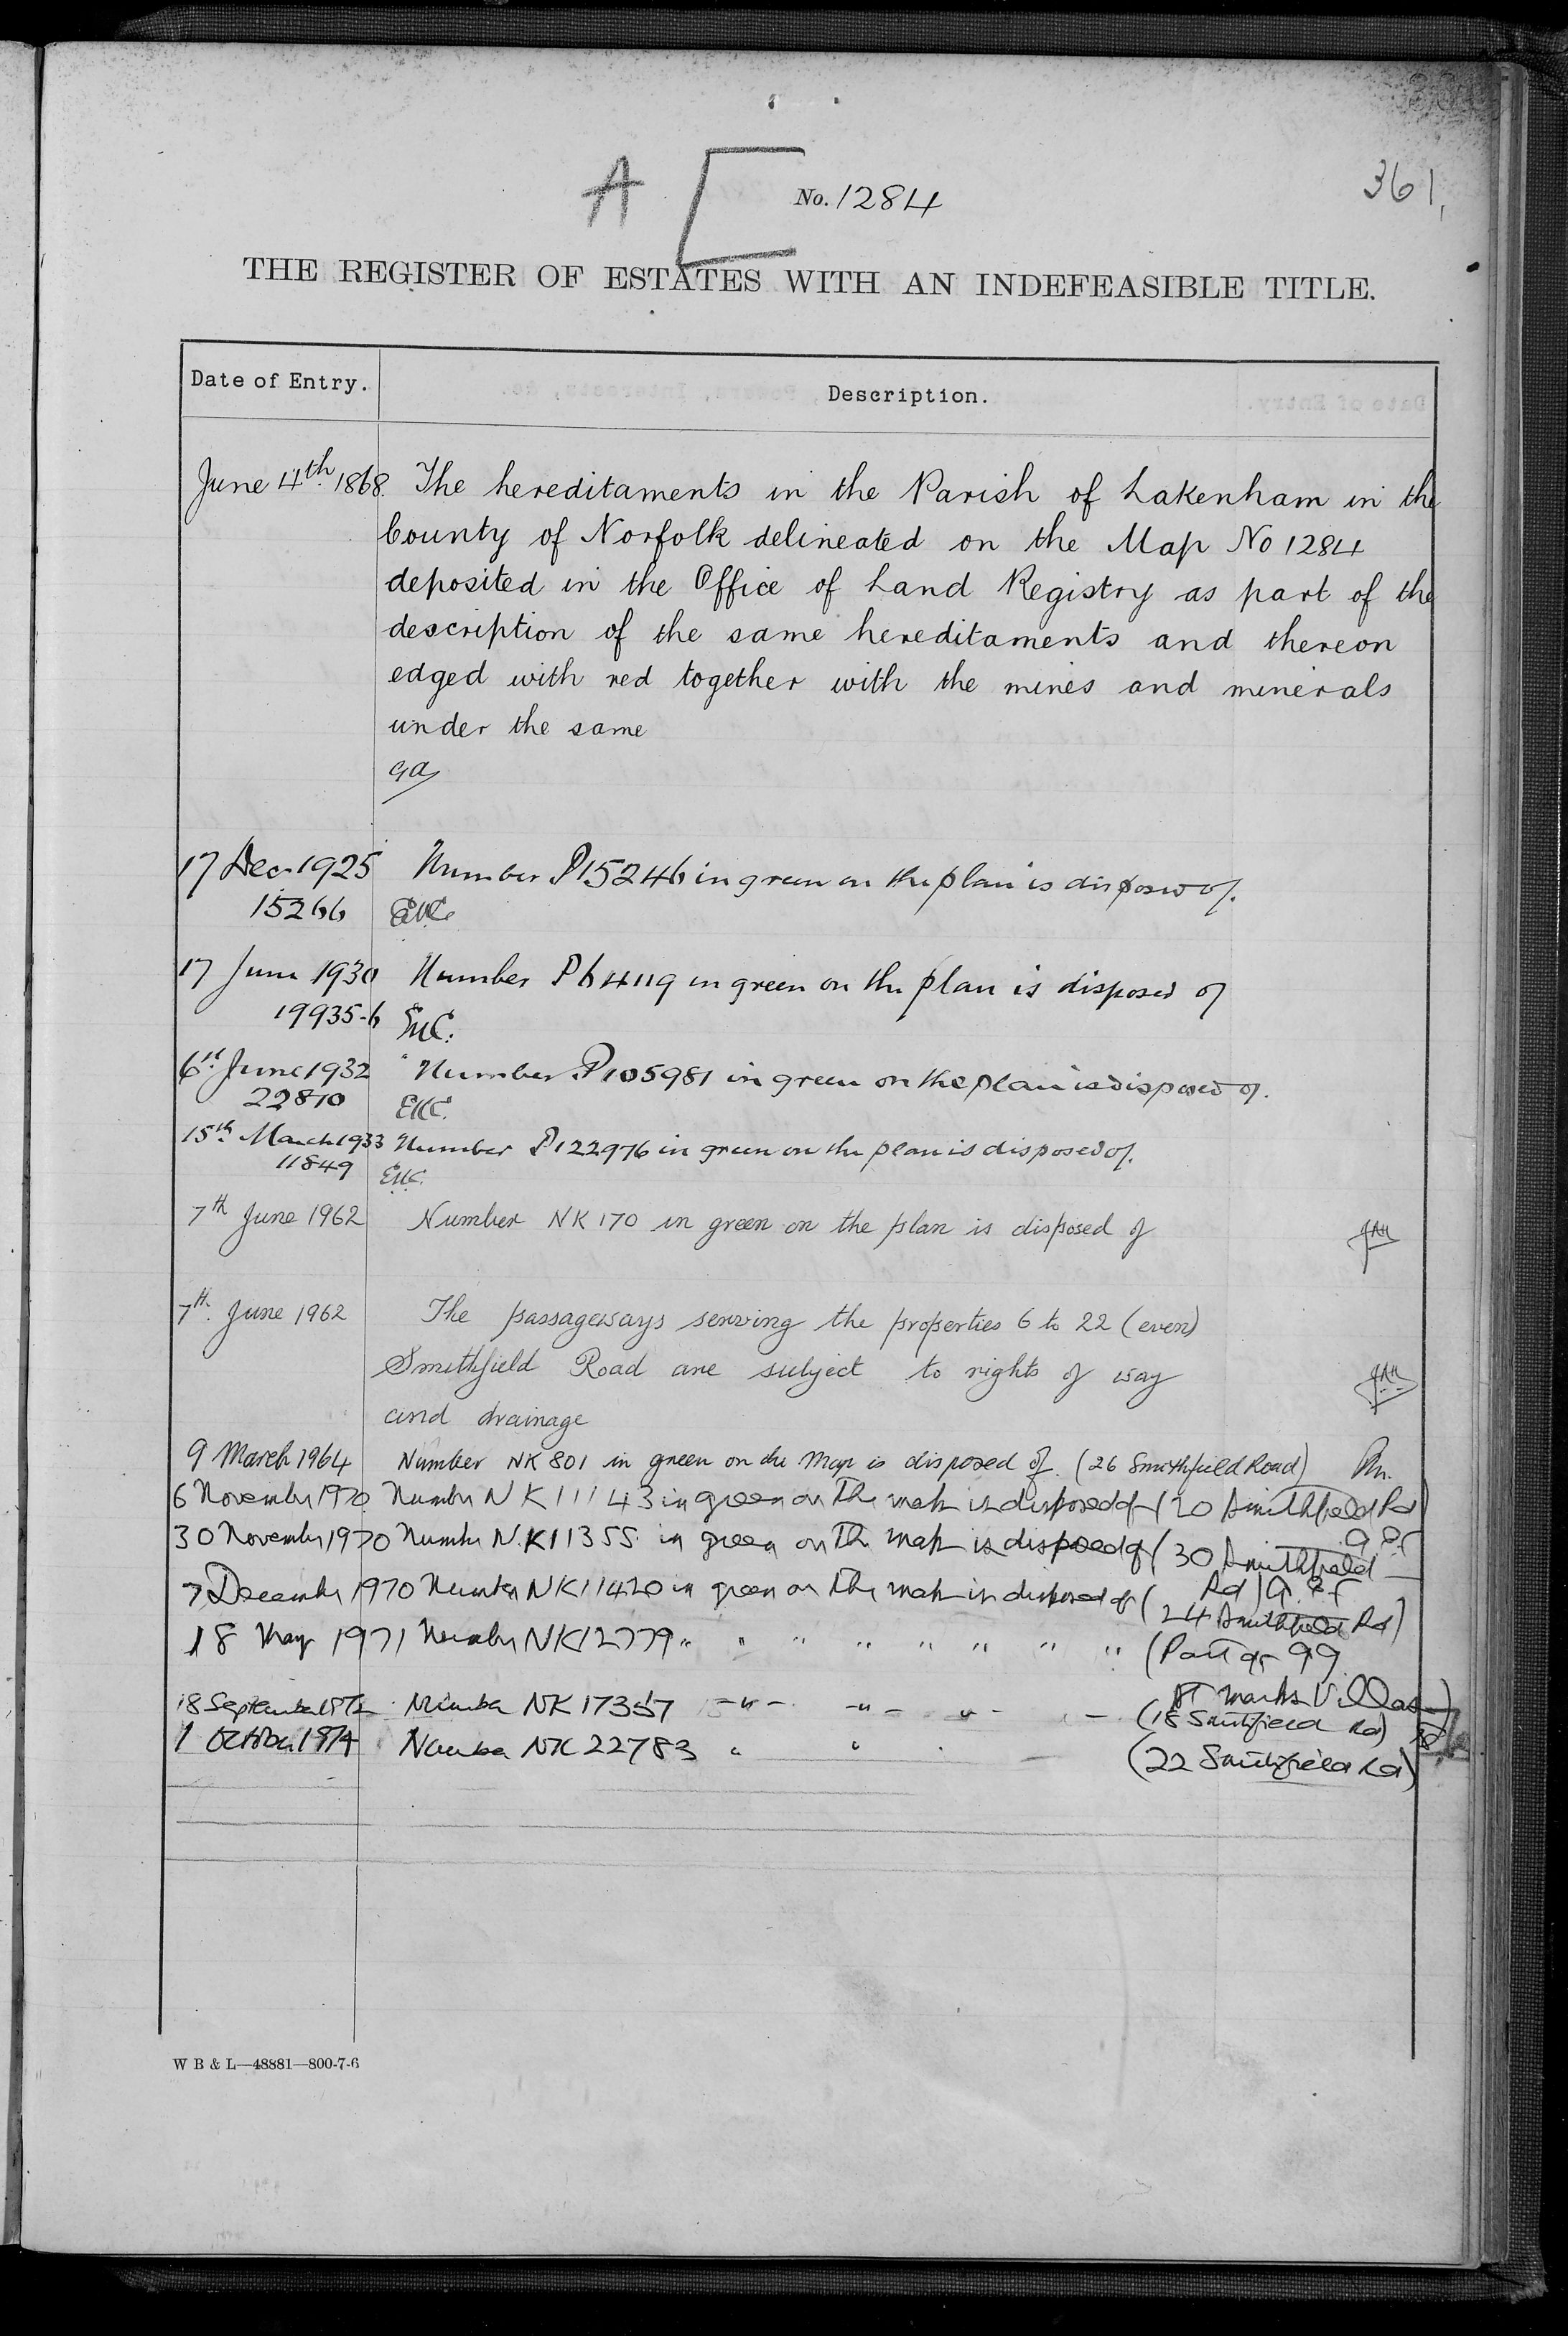 A [ No. 1284
361,
THE REGISTER OF ESTATES WITH AN INDEFEASIBLE TITLE.
Date of Entry. Description.
June 4th 1868. The hereditaments in the Parish of Lakenham in the
County of Norfolk delineated on the Map No 1284
deposited in the Office of Land Registry as part of the
description of the same hereditaments and thereon
edged with red together with the mines and minerals
under the same
17 Dec. 1925 Number P15246 in green on the plan is disposed of.
15266
17 June 1930 Number P64119 in green on the plan is disposed of
19935-6
6th June 1932 Number P105981 in green on the plan is disposed of.
22810
15th March 1933 Number P122976 in green on the plan is disposed of.
11849
7th June 1962 Number NK 170 in green on the plan is disposed of
7th. June 1962 The passageways serving the properties 6 to 22 (even)
Smithfield Road are subject to rights of way
and drainage
9 March 1964 Number NK 801 in green on the Map is disposed of. (26 Smithfield Road)
6 November 1970 Number NK 11143 in green on the map is disposed of (20 Smithfield Rd)
30 November 1970 Number N.K11355. in green on the map is disposed of (30 Smithfield
Rd)
7 December 1970 Number NK11420 in green on the map is disposed of (24 Smithfield Rd)
18 May 1971 Number NK12779 " " " " " " " " (Part of 99
St Marks Villas)
18 September 1972 Number NK 17357 -"- -"- "- - (18 Smithfield Rd)
1 October 1974 Number NK 22783 " " (22 Smithfield Rd)
W B & L—48881—800-7-6